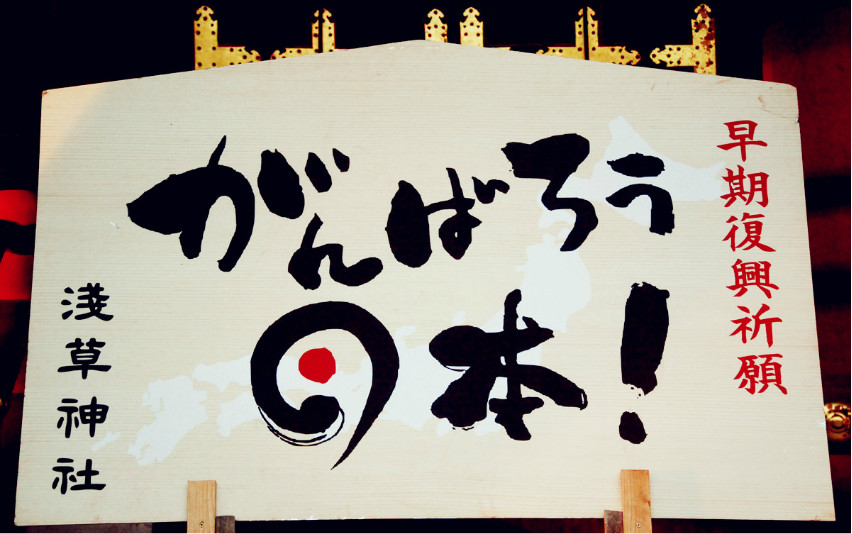 がんばろう
日本!
早期復興祈願
淺草神社